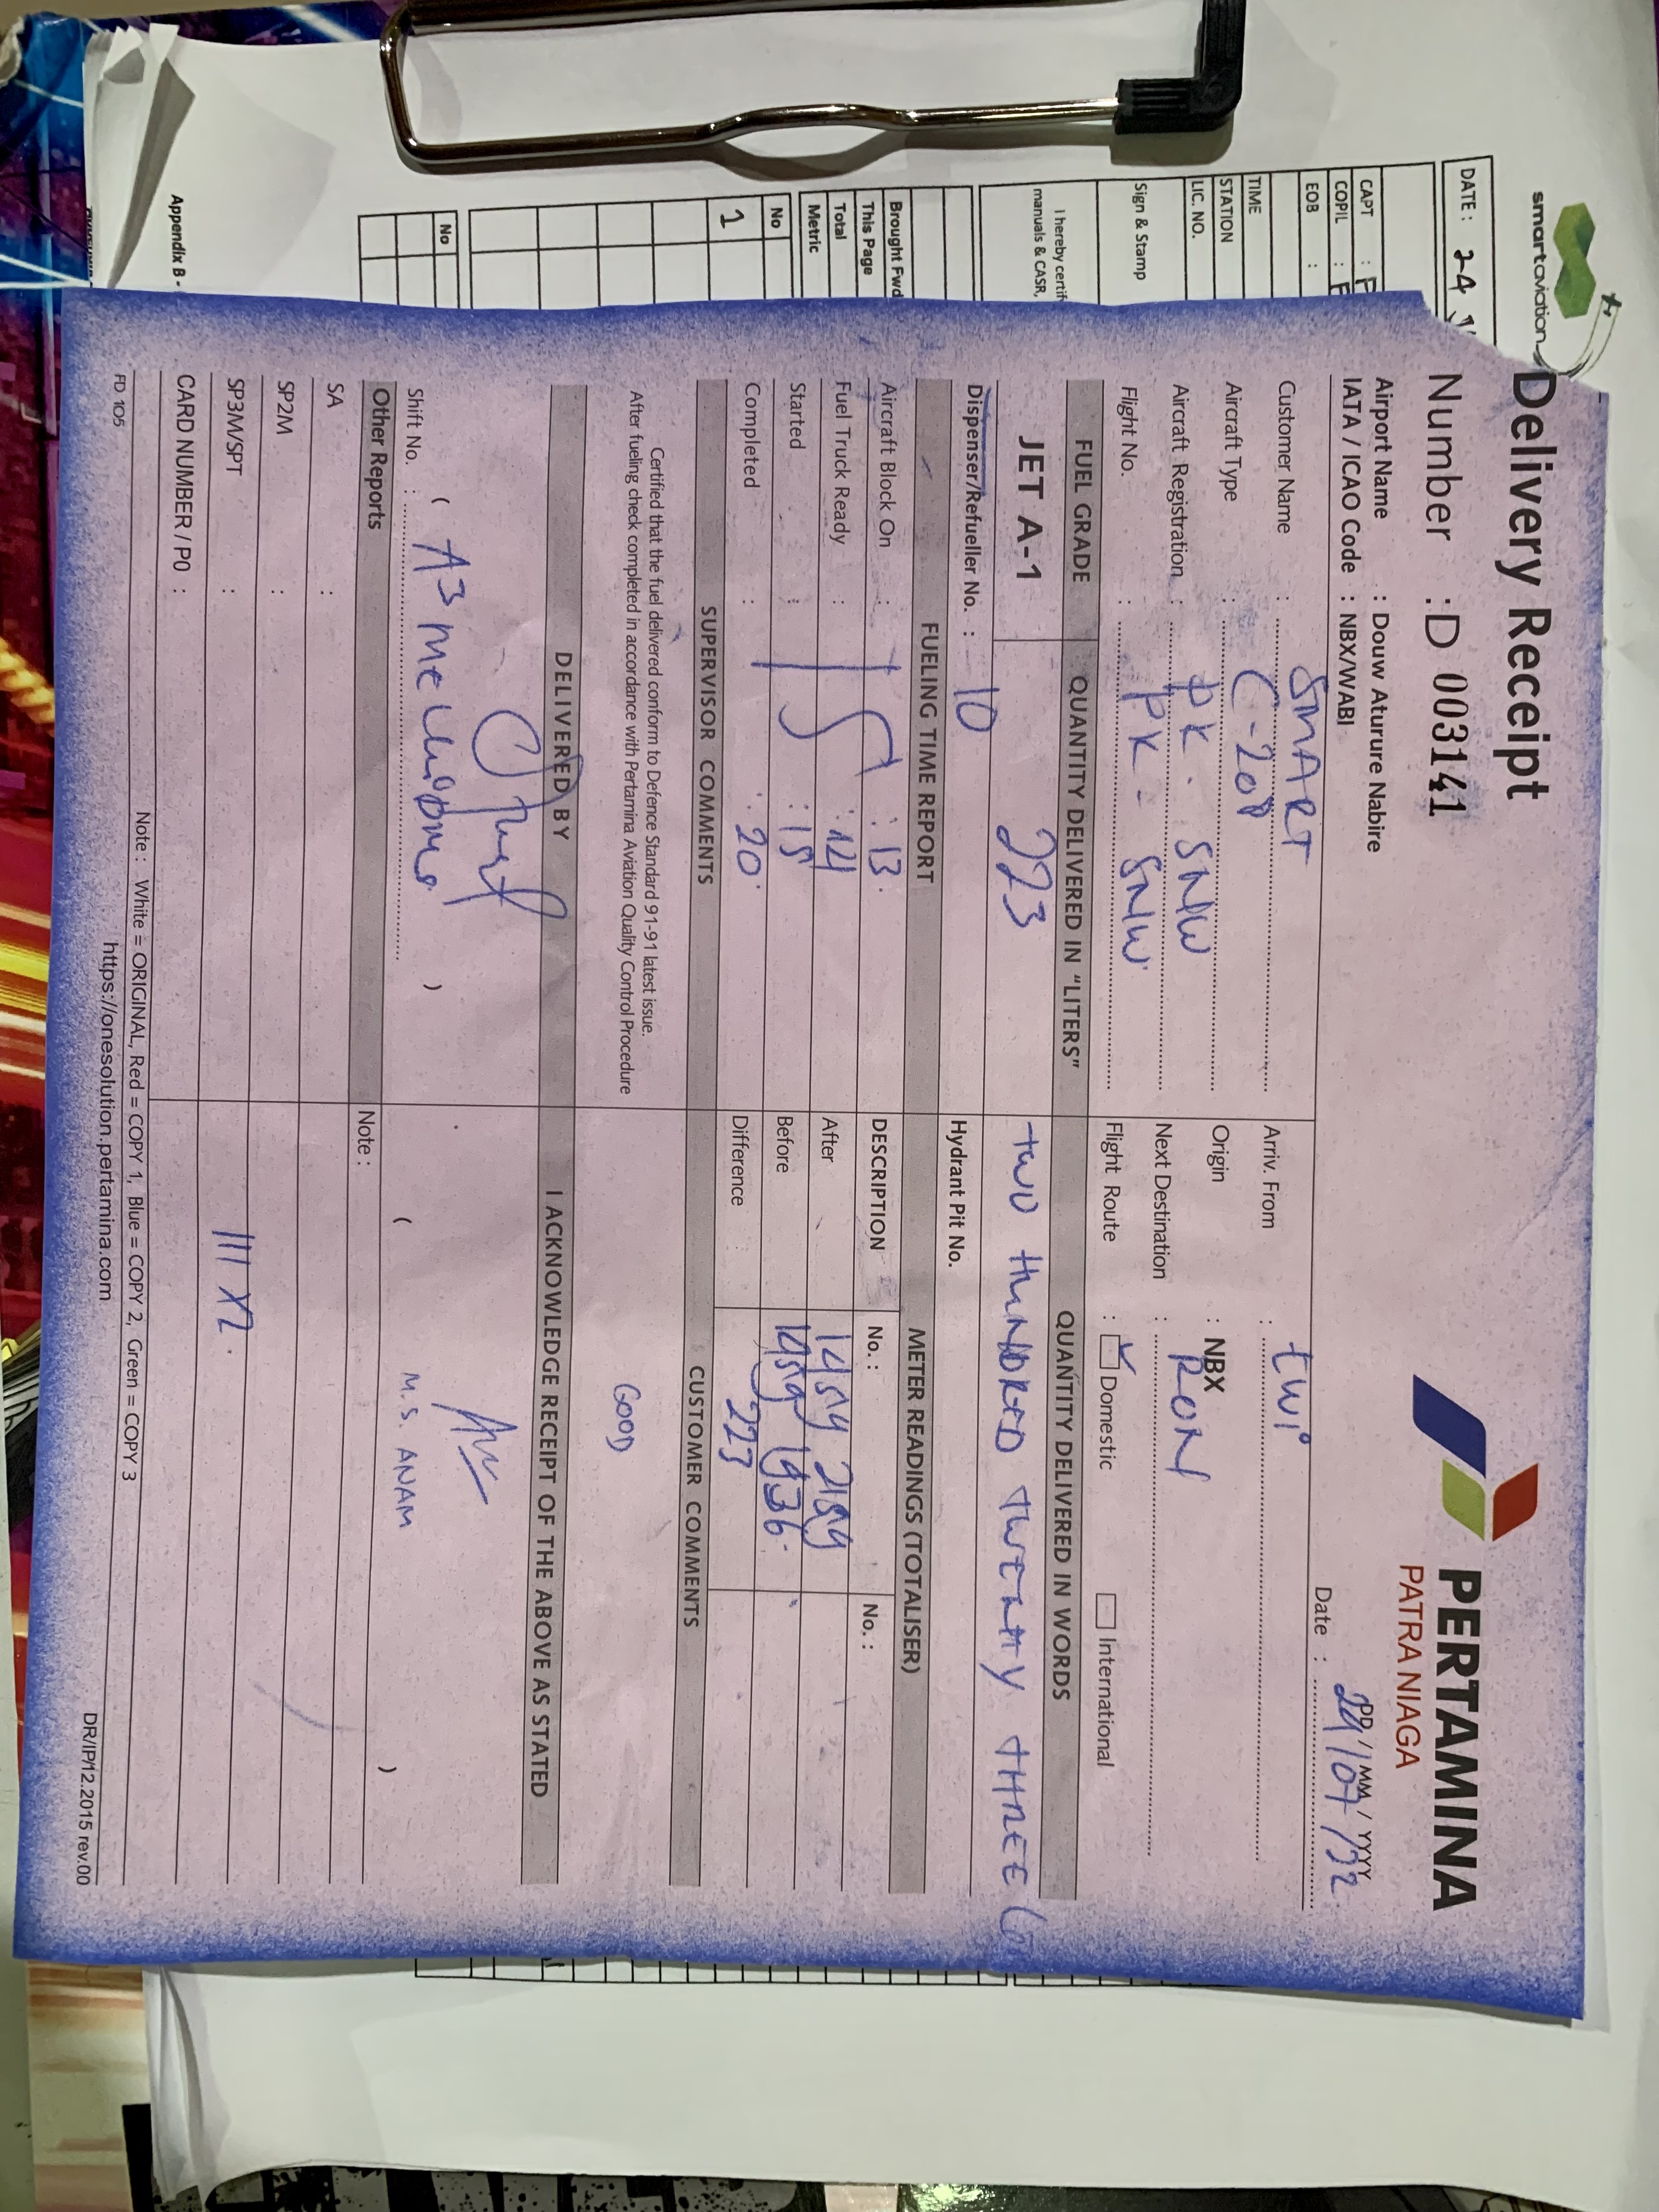 smartaviation
DATE : 24
CAPT :
COPIL :
EOB :
TIME
STATION
LIC. NO.
Sign & Stamp
I hereby certif
manuals & CASR,
Brought Fwd
This Page
Total
Metric
No
1
No
Appendix B -
Delivery Receipt
Number : D 003141
PERTAMINA
PATRA NIAGA
Airport Name : Douw Aturure Nabire
IATA / ICAO Code : NBX/WABI
DD / MM / YYYY
Date :
Customer Name : SMART
Aircraft Type : C-208
Aircraft Registration : PK - SNW
Flight No. : PK - SNW
Arriv. From : twi
Origin : NBX
Next Destination : RON
Flight Route : Domestic International
FUEL GRADE QUANTITY DELIVERED IN "LITERS" QUANTITY DELIVERED IN WORDS
JET A-1 223 two HUNDRED TWENTY THREE
Dispenser/Refueller No. : 10 Hydrant Pit No.
FUELING TIME REPORT METER READINGS (TOTALISER)
Aircraft Block On : : 13. DESCRIPTION No. : No. :
Fuel Truck Ready : : 14 After
Started : : 15 Before
Completed : : 20. Difference 223
SUPERVISOR COMMENTS CUSTOMER COMMENTS
Certified that the fuel delivered conform to Defence Standard 91-91 latest issue.
After fueling check completed in accordance with Pertamina Aviation Quality Control Procedure
GOOD
DELIVERED BY I ACKNOWLEDGE RECEIPT OF THE ABOVE AS STATED
( ) ( M.S. ANAM )
Shift No. :
Other Reports Note :
SA :
SP2M :
SP3M/SPT :
CARD NUMBER / PO :
Note : White = ORIGINAL, Red = COPY 1, Blue = COPY 2, Green = COPY 3
FD 105 https://onesolution.pertamina.com DR/IP/12.2015 rev.00